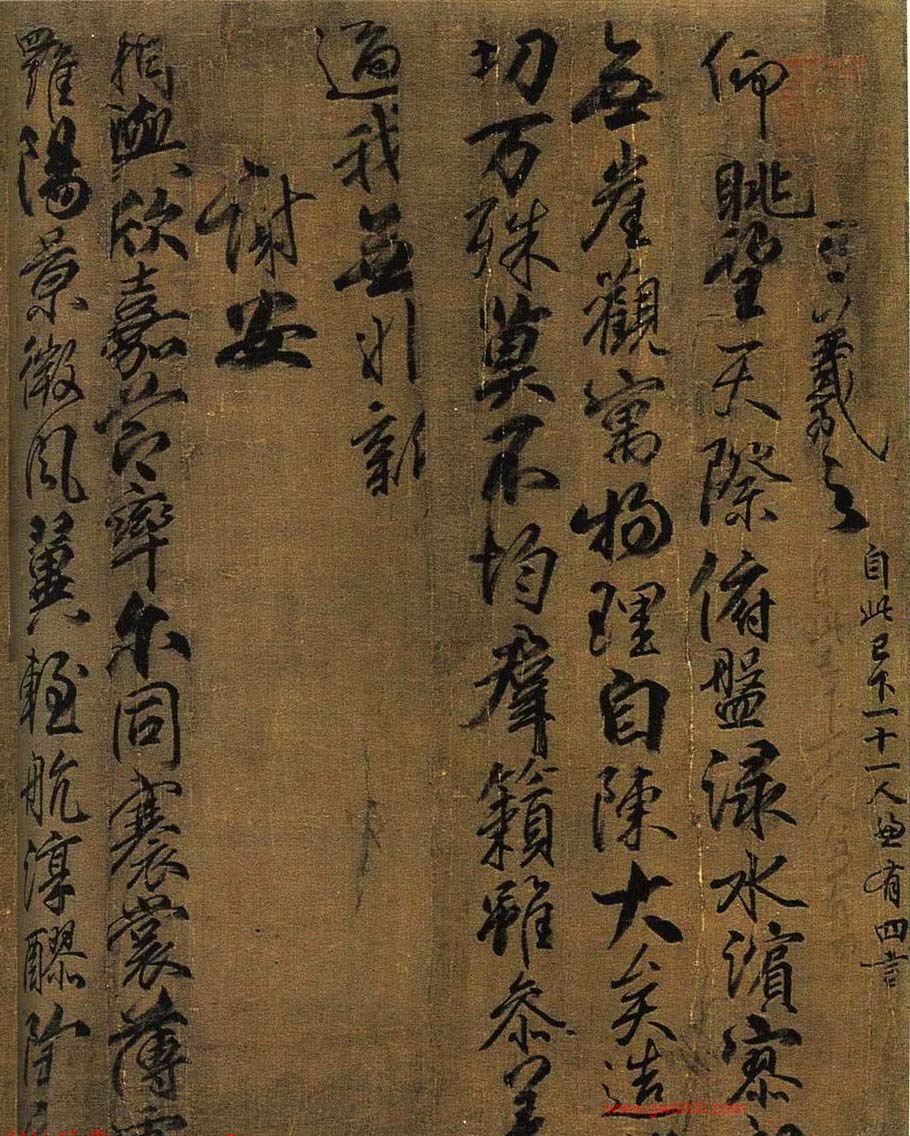 王羲之
自此已下一十一人並有四言
仰眺望天際俯盤淥水濱寥
無崖觀寓物理自陳大矣造
切万殊莫不均羣籟雖叅差
適我無非新
謝安
相與欣嘉節率尔同褰裳薄雲
羅陽景微風翼輕航淳醪陶